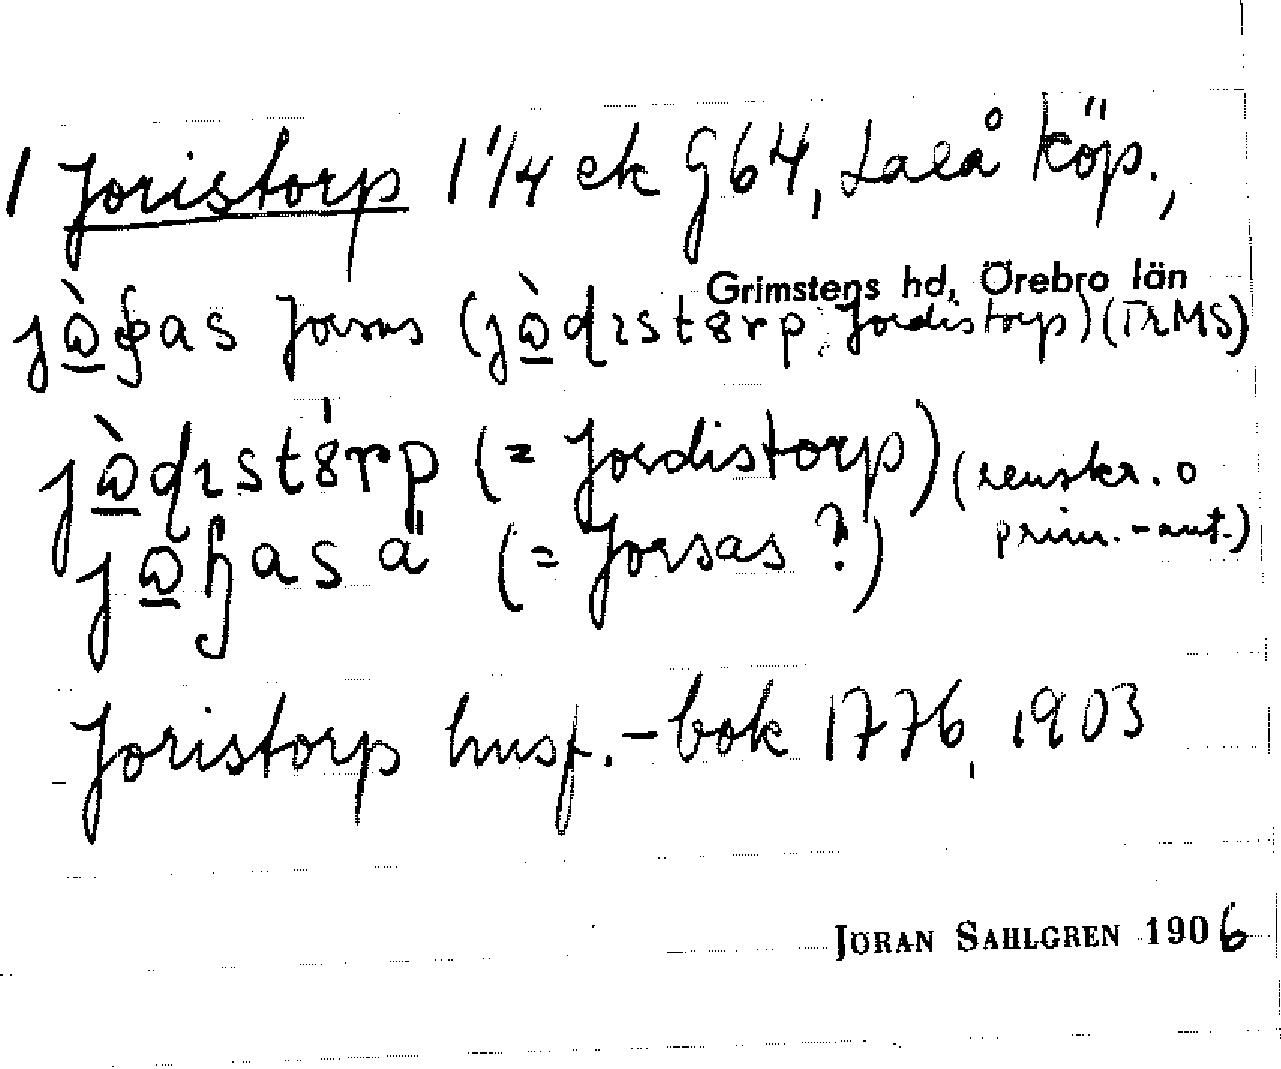 1 Joristorp 1 1/4 ek g 64, Laxå köp.,
Grimstens hd, Örebro län
Jorsas (Jordistorp) (TRMS)
(= Jordistorp) (renskr. o
prim.-ant.)
(= Jorsas ?)
Joristorp husf.-bok 1776, 1903
JÖRAN SAHLGREN 1906